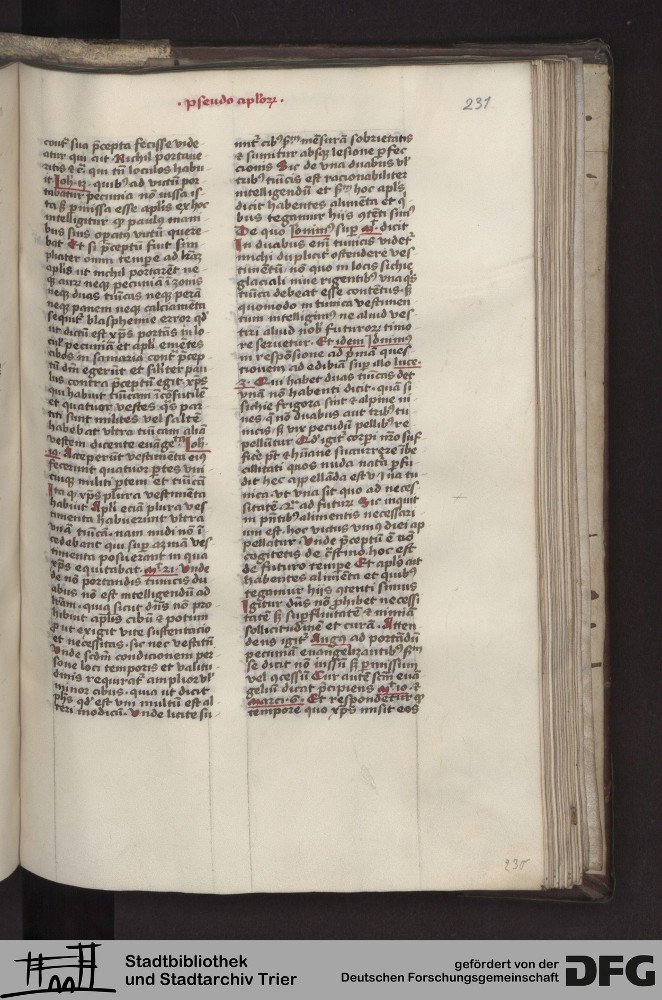 · pseudo aplor̄ ·
231
cont̄ sua p̄cepta fecisse vide
atur qui ait Nichil portave
ritis ⁊ c̄ qui tn̄ loculos habu
it Joh. 12. quibꝰ ad victū por
tabatur pecunia nō iussa is
ta ẜ p̄missa esse aplis ex hoc
intelligitur qꝫ paulꝰ mani
bus suis opatꝰ victū quere
bat Et si p̄ceptū fuit sim
pliciter omni tempe ad hāc
aplis ut nichil portarēt ne
qꝫ aurū neqꝫ pecuniā ī zonis
neqꝫ duas tūicas neqꝫ perā
neqꝫ panem neqꝫ calciamēta
sequit᷑ blasphemie error qd̓
ut dictū est xp̄s portans in lo
cul̓ pecuniā et apli emētes
cibos in samaria cont̄ p̄cep
tū dm̄ egerūt et siliter pau
lus contra p̄ceptū egit. xp̄s
qui habuit tūicam īcōsutilē
et quatuor vestes qᵃ̄s par
titi sunt milites vel saltē
habebat ultra tūicam aliā
vestem dicente evāgeᵗᵃ Joh.
19. Acceperūt vestimēta eiꝰ
fecerunt quatuor p̄tes uni
cuiqꝫ militi p̄tem et tūicā
Ita qꝫ xp̄s plura vestimēta
habuit Apli eciā plura ves
timenta habuerunt ultra
unā tūicā. nam nudi nō ī
cedebant qui sup̄ azinā ves
timenta posuerant in qua
xp̄s equitabat mᵗ. 21. Unde
de nō portandis tunicis du
abus nō est intelligendū ad
lr̄am. quia sicut dn̄s nō pro
hibuit aplis cibū ⁊ potum
put exigit vite sustentacio
et necessitas. sic nec vestitū
Unde scdm̄ condicionem per
sone loci temporis et valitu
dinis requirat᷑ amplior vl̓
minor cibus. quia ut dicit
ph̄s qd̓ est uni multū est al
teri modicū. Unde licite su
mit᷑ cibꝰ sᵐ mēsurā sobrietatis
⁊ sumitur absqꝫ lesione p̄fec
cionis Sic de una duabus vl̓
tribꝰ tūicis est racionabiliter
intelligendū et sᵐ hoc apls
dicit habentes alimēta et qͥ
bus tegamur hijs ꝯtēti simꝰ
De quo Ieronimꝰ sup mᵗ. dicit
In duabus em̄ tunicis videt᷑
michi duplicit̄ ostendere ves
timētū. nō quo in locis sichie
glaciali nive rigentibꝰ una qͥs
tūica debeat esse contētus. ẜ
quomodo in tunica vestimen
tum intelligimꝰ ne aliud ves
tiri aliud nob̄ futuror̄ timo
re servetur. Et idem Ieronimꝰ
in respōsione ad p̄mā ques
tionem ad edibiā sup̄ illo luce.
3. Qui habet duas tūicas det
unā nō habenti dicit. quā si
sichie frigora sint ⁊ alpine ni
ves q̄ nō duabus aut tribꝰ tu
nicis. ẜ vix pecudū pellibꝰ re
pellūtur Qd̓ igit᷑ corpi nr̄o suf
fic̄e pt̄ ⁊ hūane succurrere ībe
cillitati quos nuda natᵃ p̄fu
dit hec appellāda est vͣ na tu
nica. ut una sit quo ad neces
sitatē ⁊ᵃ ad futurū Sic inquit
in pn̄tibꝰ alimentis necessari
um est. hoc victus unꝰ diei ap
pellatur. Unde p̄ceptū ē nō
cogitetis de c̄stino. hoc est
de futuro tempe Et apls ait
habentes alimēta et quibꝰ
tegamur hijs ꝯtenti simus
Igitur dn̄s nō p̄hibet necessi
tatē ẜ sup̄fluitatē ⁊ nimiā
sollicitudinē et curā. Atten
dens igit᷑ Augꝰ ad portādū
pecuniā evangelizantibꝰ sᵐ
se dicit nō iussū ẜ p̄missum
vel ꝯcessū Cur autē scdm̄ evā
geliū dicat p̄cipiens mᵗ. 10. ⁊
Marci. 6. Et respondetur qꝫ
tempore quo xp̄s misit eos
230
Stadtbibliothek
und Stadtarchiv Trier
gefördert von der
Deutschen Forschungsgemeinschaft
DFG